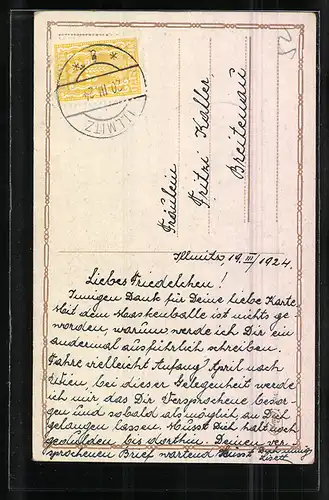 52
ILLMITZ
20. III. 24
Fräulein
Fritzi Kaller
Breitenau
Illmitz, 19. III/1924.
Liebes Friedelchen!
Innigen Dank für Deine liebe Karte.
Mit dem Maskenballe ist nichts ge
worden, warum werde ich Dir ein
andermal ausführlich schreiben.
Fahre vielleicht Anfang April nach
Wien, bei dieser Gelegenheit werde
ich mir das Dir Versprochene besor
gen und sobald als möglich an Dich
gelangen lassen. Musst Dich halt noch
gedulden bis dorthin. Deinen ver
sprochenen Brief wartend küsst Dich innig
Lisett